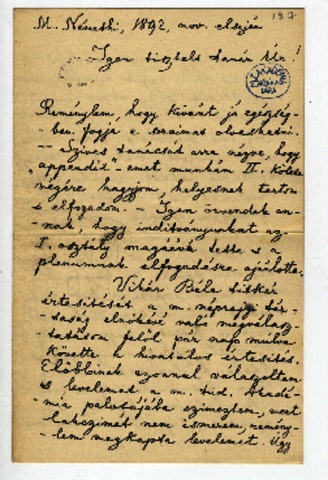 197
M. Németi, 1892, nov. elsején
Igen tisztelt tanár Úr!
Reménylem, hogy kivánt jó egészség-
ben fogja e soraimat olvashatni.
— Szíves tanácsát arra nézve, hogy
„appendix"-emet munkám II. kötete
végére hagyjam, helyesnek tartom
s elfogadom. — Igen örvendek an-
nak, hogy indítványunkat az
I. osztály magáévá tette s a
plenumnak elfogadásra ajánlotta.
Vikár Béla titkár
értesítését a m. néprajzi tár-
saság elnökévé való megválasz-
tatásom felől pár nap mulva
követte a hivatalos értesítés.
Előbbinek azonnal válaszoltam
s levelemet a m. tud. Akadé-
mia palotájába czímeztem, mert
lakczímét nem ismerem, remény-
lem megkapta levelemet. Úgy